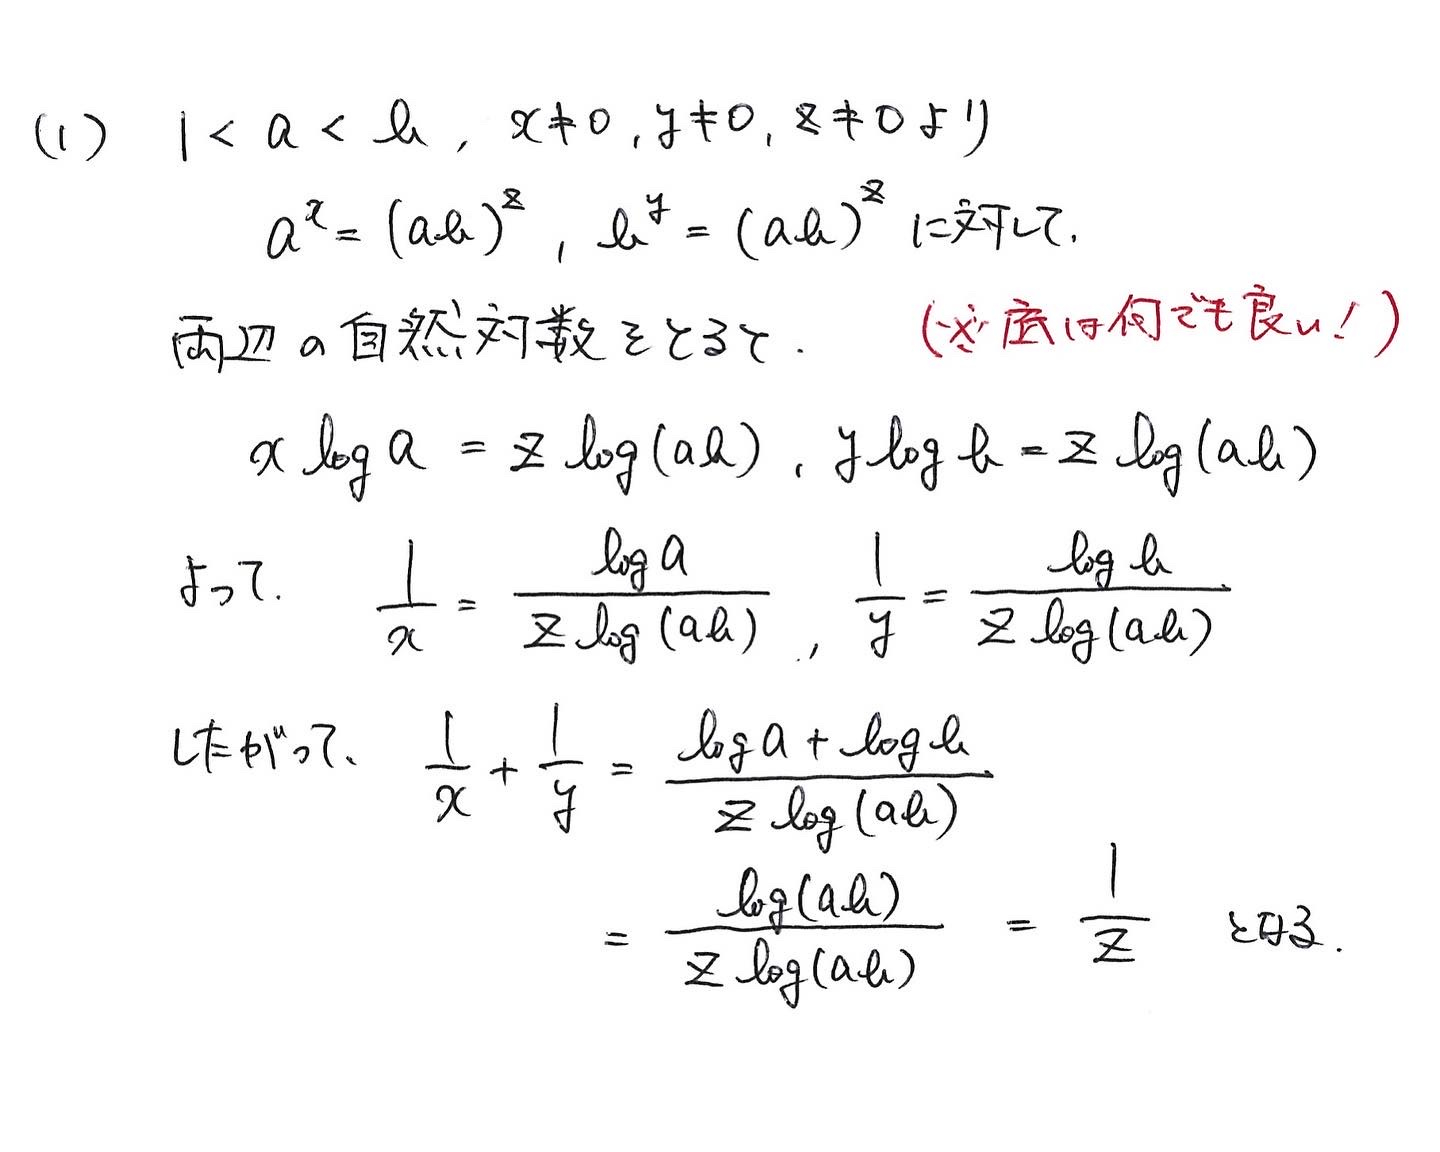 (1) 1 < a < b , x≠0, y≠0, z≠0 より
a^x = (ab)^z , b^y = (ab)^z に対して.
両辺の自然対数をとると. (※底は何でも良い!)
x log a = z log(ab) , y log b = z log(ab)
よって. 1/x = log a / z log(ab) , 1/y = log b / z log(ab)
したがって、 1/x + 1/y = log a + log b / z log(ab)
= log(ab) / z log(ab) = 1/z となる.